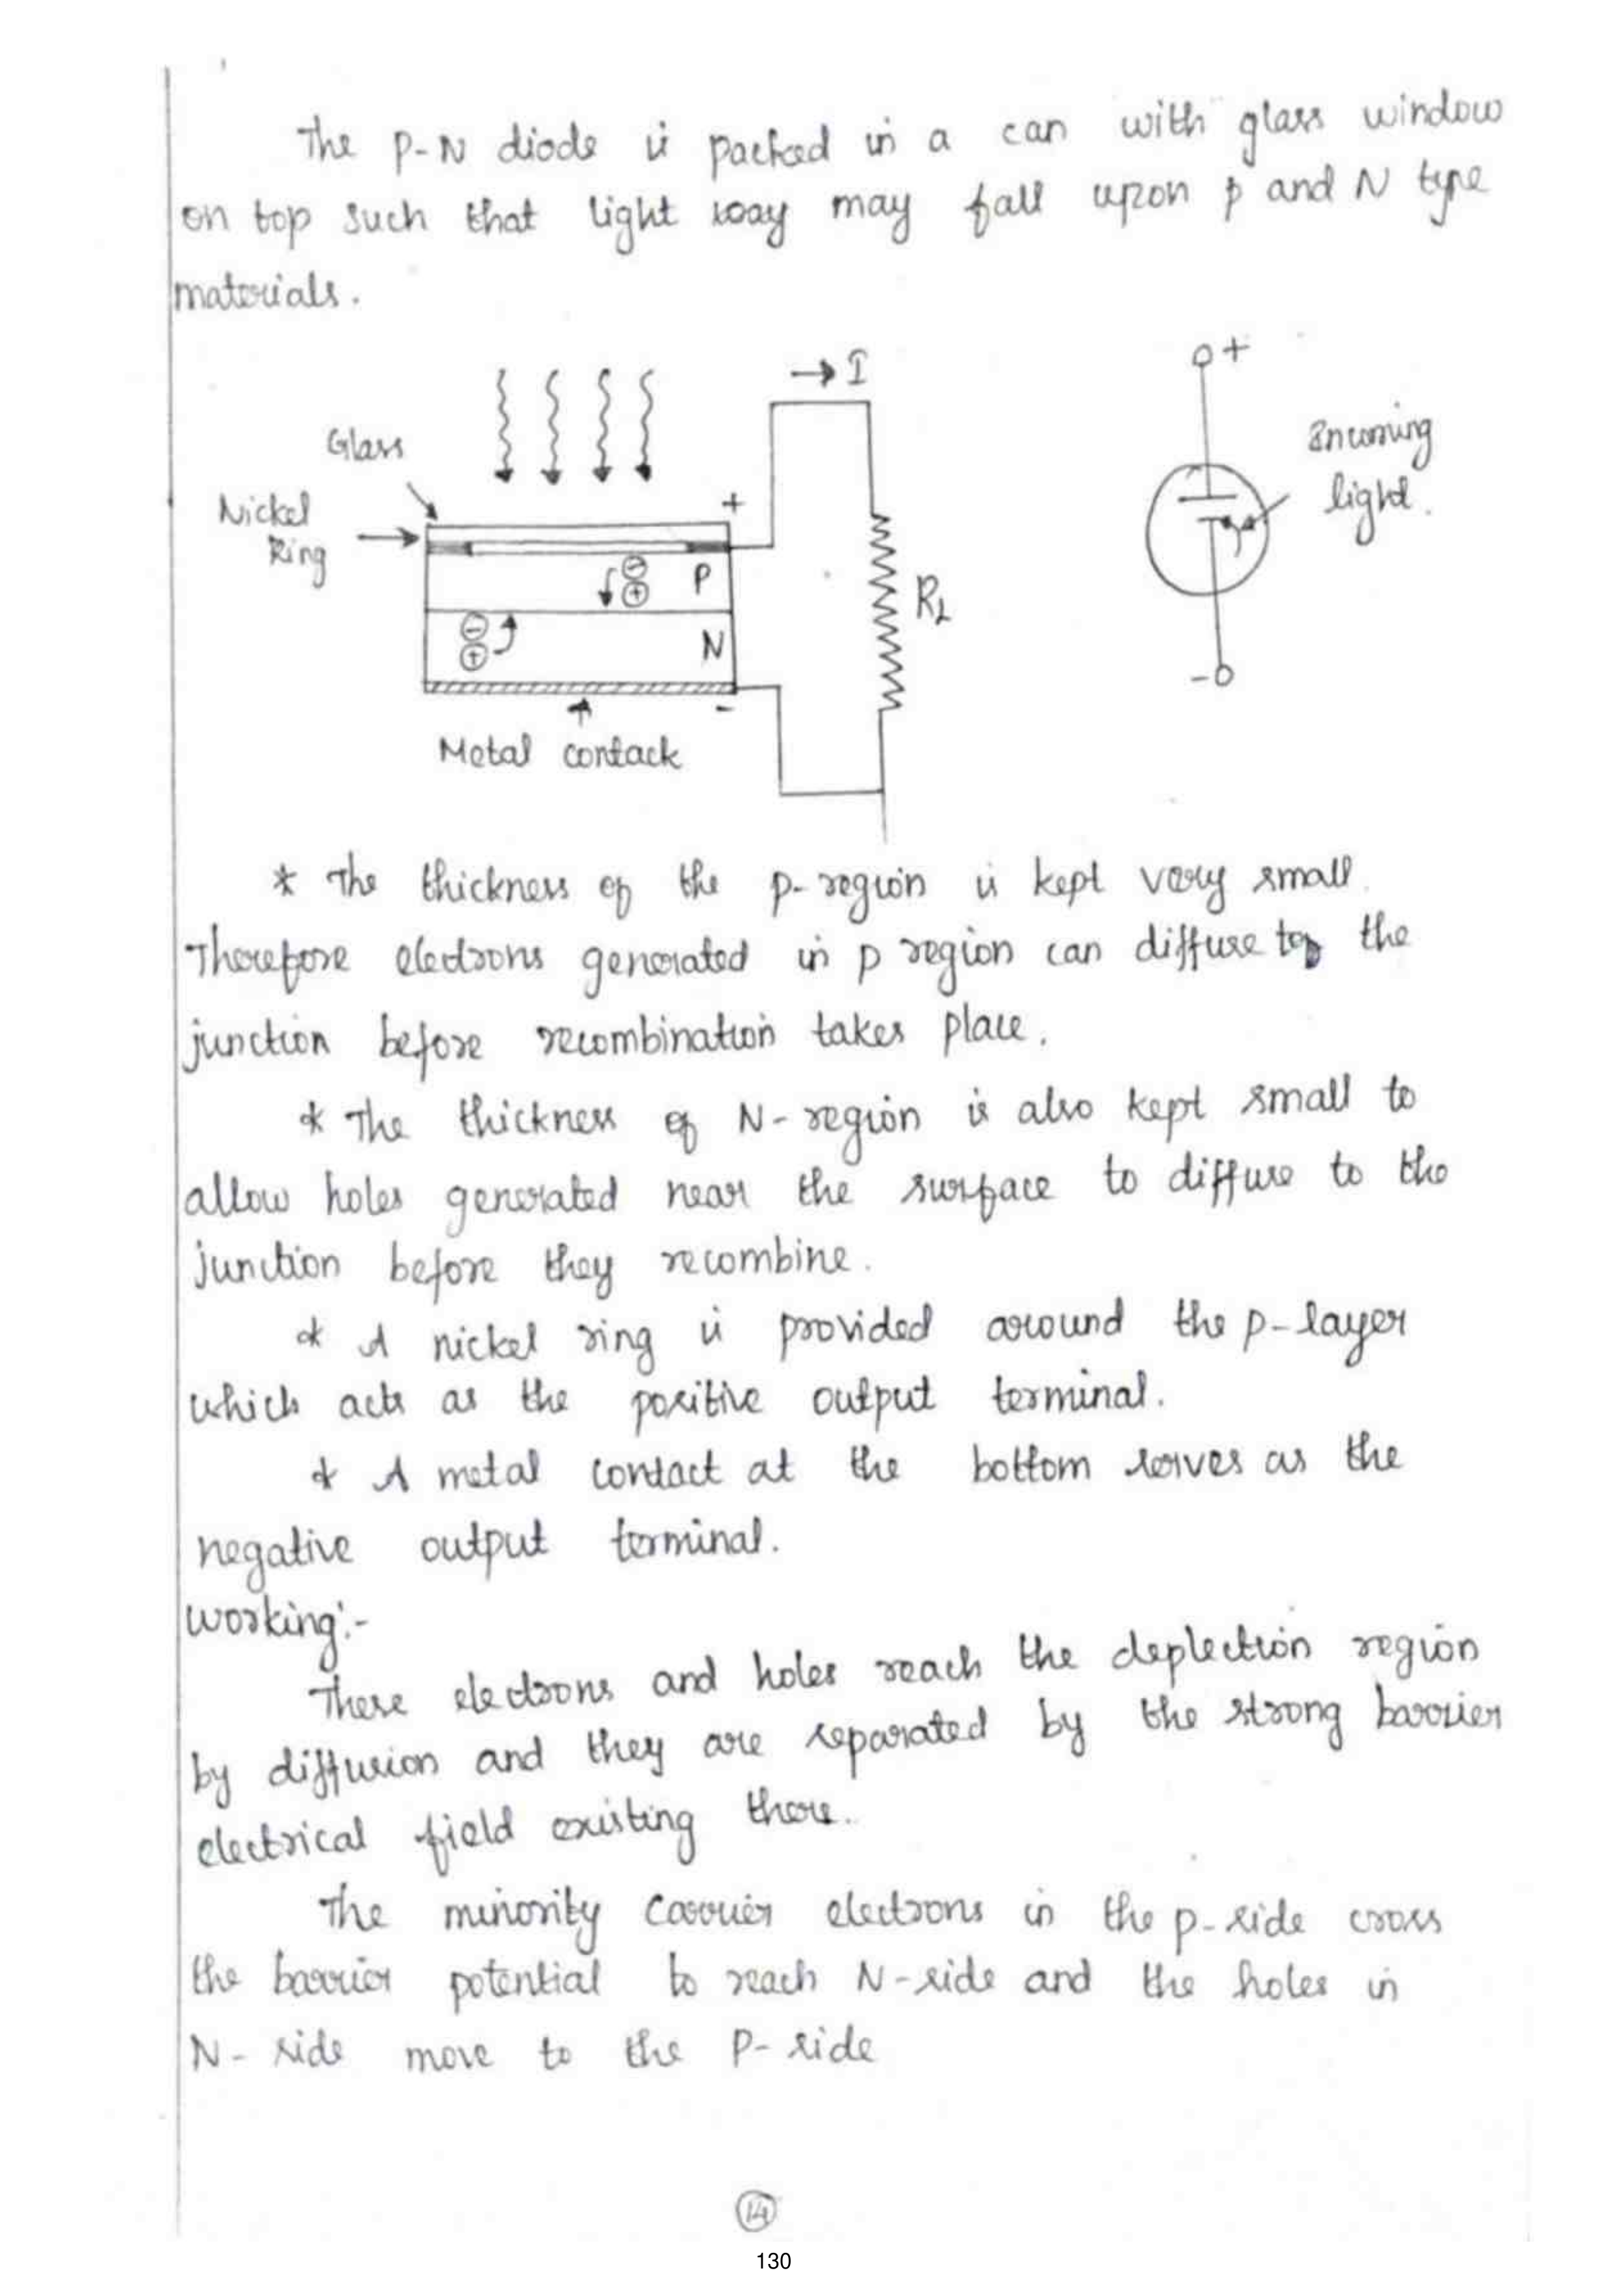 The P-N diode is packed in a can with glass window
on top such that light ray may fall upon p and N type
materials.
→ I
+
Glass
Incoming
light.
Nickel
Ring
+
P
N
RL
-
-
Metal contack
* The thickness of the p-region is kept very small.
Therefore electrons generated in p region can diffuse to the
junction before recombination takes place.
* The thickness of N-region is also kept small to
allow holes generated near the surface to diffuse to the
junction before they recombine.
* A nickel ring is provided around the p-layer
which acts as the positive output terminal.
* A metal contact at the bottom serves as the
negative output terminal.
Working:-
These electrons and holes reach the deplection region
by diffusion and they are separated by the strong barrier
electrical field existing there.
The minority carrier electrons in the p-side cross
the barrier potential to reach N-side and the holes in
N-side move to the P-side
14
130